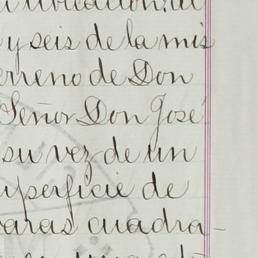 y seis de la mis
erreno de Don
Señor Don José
su vez de un
uperficie de
varas cuadra-